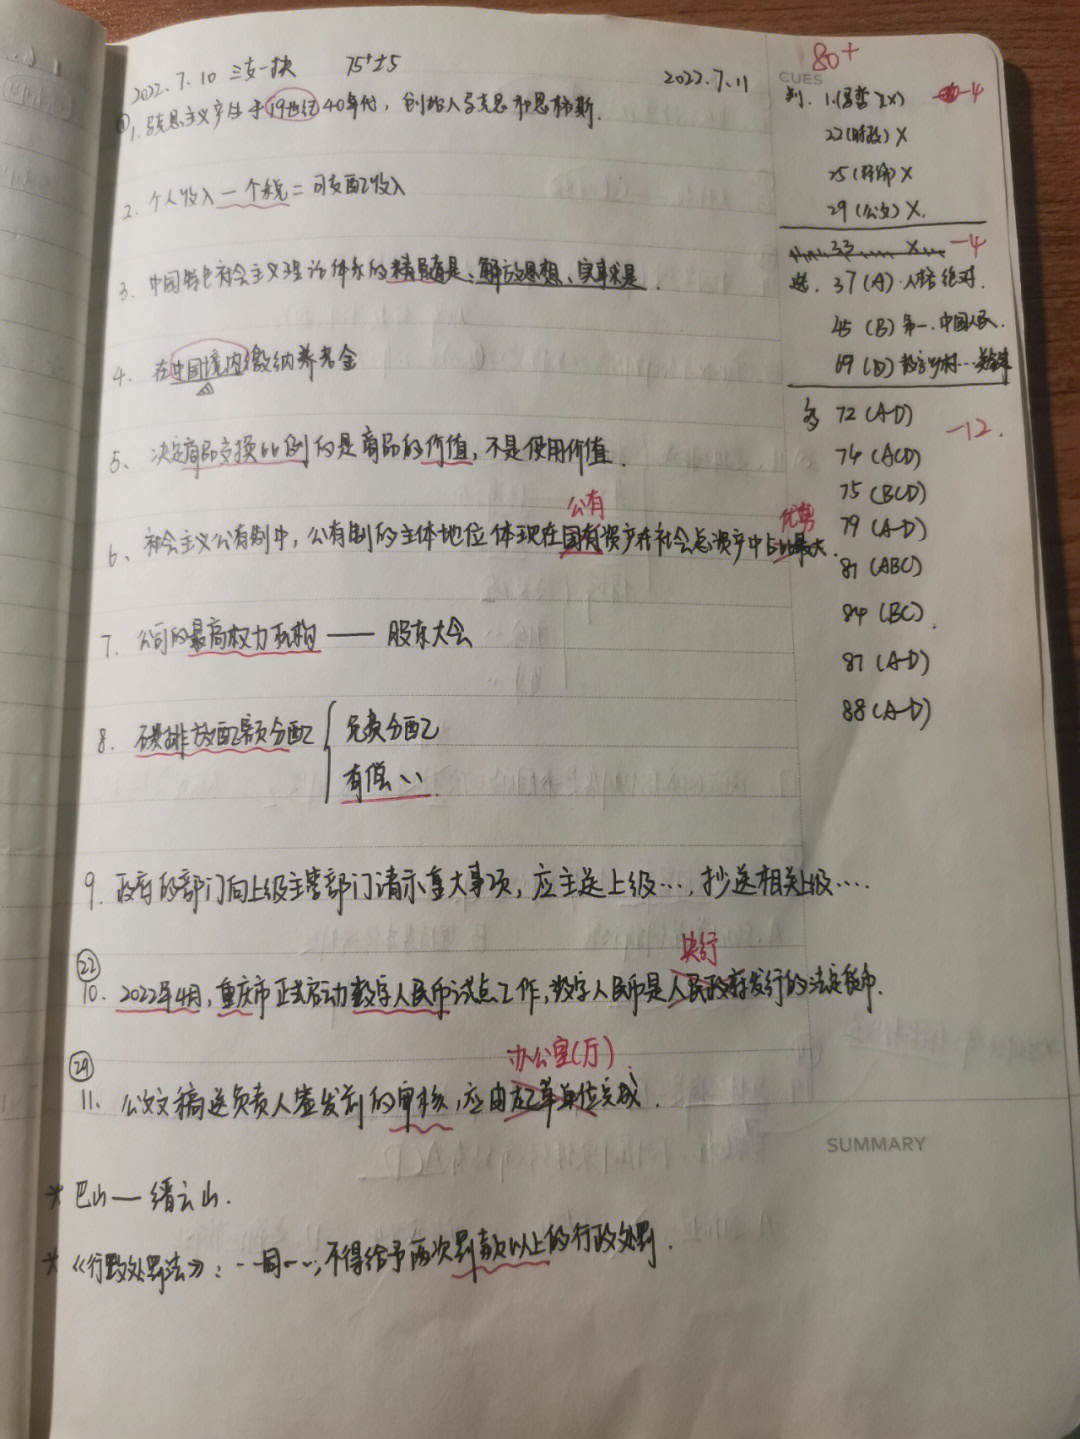 2022.7.10 三支一扶 75⁺±5 2022.7.11
① 1. 马克思主义产生于19世纪40年代，创始人马克思和恩格斯.
2. 个人收入一个税=可支配收入
3. 中国特色社会主义理论体系的精髓是、解放思想、实事求是.
4. 在中国境内缴纳养老金
5、决定商品交换比例的是商品的价值，不是使用价值.
公有 优势
6、社会主义公有制中，公有制的主体地位体现在国有资产在社会总资产中占比最大.
7. 公司的最高权力机构——股东大会
8. 碳排放配额分配 { 免费分配
有偿 〃
9. 政府的部门向上级主管部门请示重大事项，应主送上级…，抄送相关上级….
㉒ 央行
10. 2022年4月，重庆市正式启动数字人民币试点工作，数字人民币是人民政府发行的法定货币.
㉙ 办公室(厅)
11. 公文文稿送负责人签发前的审核，应由起草单位完成.
* 巴山—缙云山.
* 《行政处罚法》：--同一…，不得给予两次罚款以上的行政处罚.
80+
CUES
判. 1.(马哲)(X) -4
22(时政)X
25(经济)X
29(公文)X.
33 X -4
选. 37(A).人格绝对.
45(B)第一.中国人民.
69(D)
多 72(A-D) -12.
74(ACD)
75(BCD)
79(A-D)
81(ABC)
84(BC).
87(A-D)
88(A-D)
SUMMARY